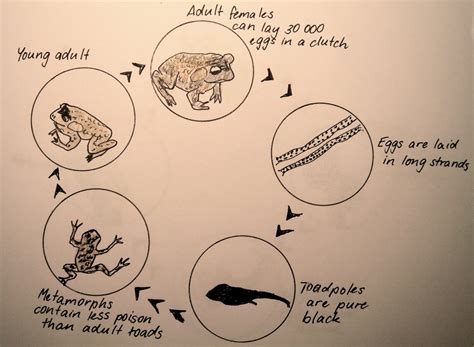 Adult females
can lay 30 000
eggs in a clutch
Young adult
Eggs are laid
in long strands
Toadpoles
are pure
black
Metamorphs
contain less poison
than adult toads